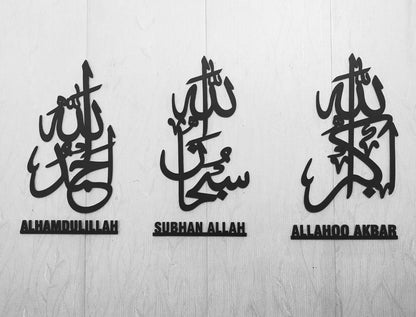 الحمد لله
سبحان الله
الله أكبر
ALHAMDULILLAH
SUBHAN ALLAH
ALLAHOO AKBAR